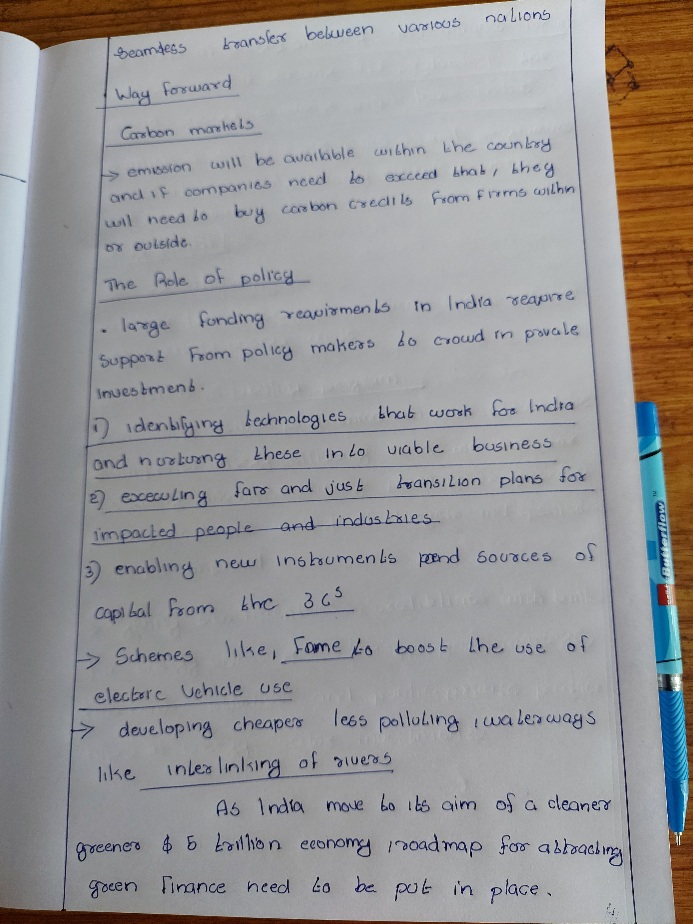 seamless transfer between various nations
Way forward
Carbon markets
→ emission will be available within the country
and if companies need to exceed that, they
will need to buy carbon credits from firms within
or outside.
The Role of policy
. large funding requirments in India require
support from policy makers to crowd in povale
investment.
1) identifying technologies that work for India
and norturng these into viable business
2) excecuting farr and just transition plans for
impacted people and industries
3) enabling new instruments and sources of
capital from the 3Cs
→ Schemes like, Fame to boost the use of
electorc vehicle use
→ developing cheaper less polluting , waterways
like interlinking of rivers
As India move to its aim of a cleaner
greener $ 5 trillion economy , roadmap for attracting
green finance need to be put in place.
Butterflow